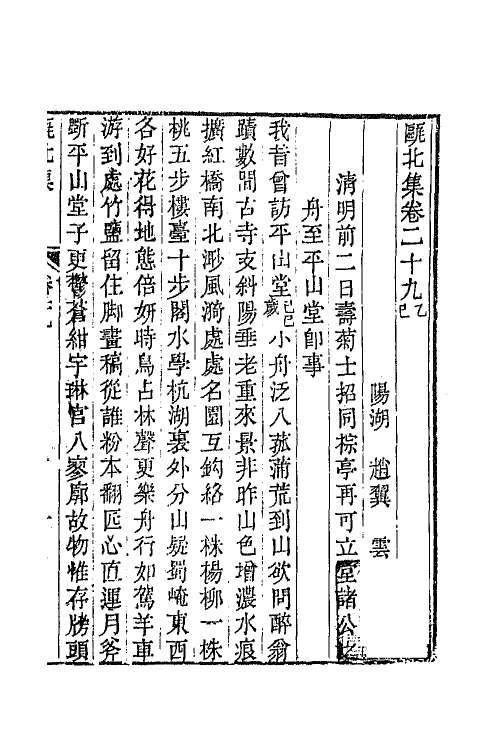 甌北集卷二十九乙巳
陽湖 趙翼 雲
清明前二日壽菊士招同棕亭再可立堂諸公
舟至平山堂卽事
我昔曾訪平山堂己巳歲小舟泛入菰蒲荒到山欲問醉翁
蹟數間古寺支斜陽垂老重來景非昨山色增濃水痕
擴紅橋南北渺風漪處處名園互鈎絡一株楊柳一株
桃五步樓臺十步閣水學杭湖裏外分山疑蜀崦東西
各好花得地態倍妍時鳥占林聲更樂舟行如駕羊車
游到處竹鹽留住脚畫稿從誰粉本翻匠心直運月斧
斲平山堂子更鬱蒼紺宇琳宮入寥廓故物惟存牓頭
甌北集